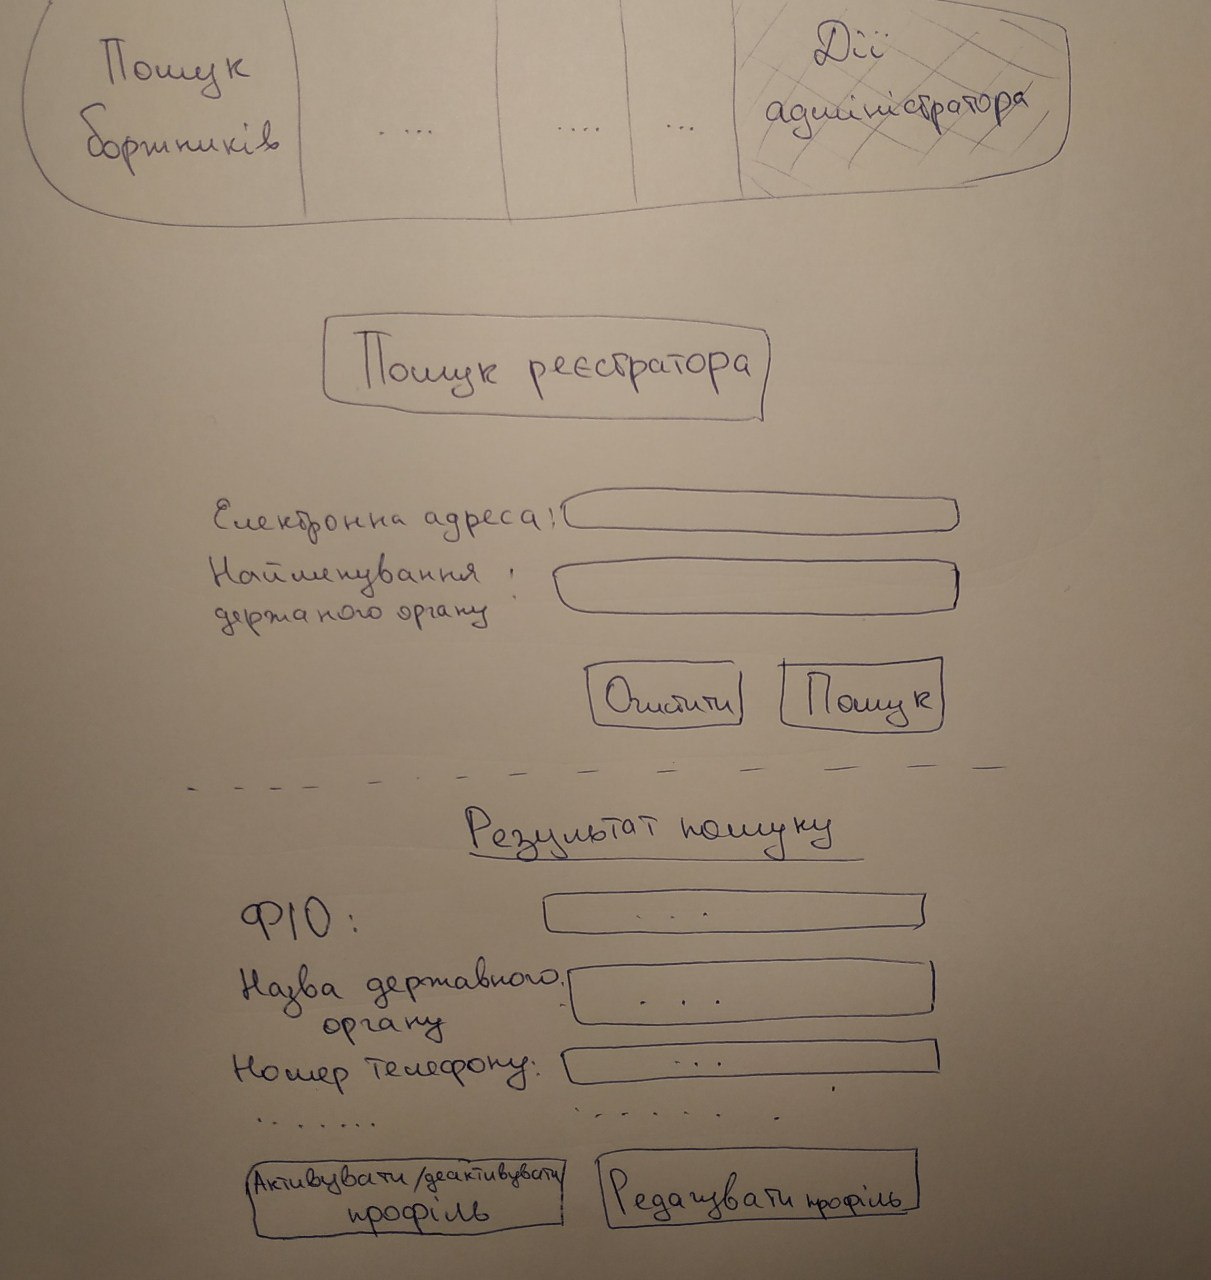 Пошук
боржників
....
....
...
Дії
адміністратора
Пошук реєстратора
Електронна адреса:
Найменування :
держаного органу
Очистити
Пошук
Результат пошуку
ФІО:
...
Назва державного:
органу
...
Номер телефону:
...
Активувати/деактивувати
профіль
Редагувати профіль